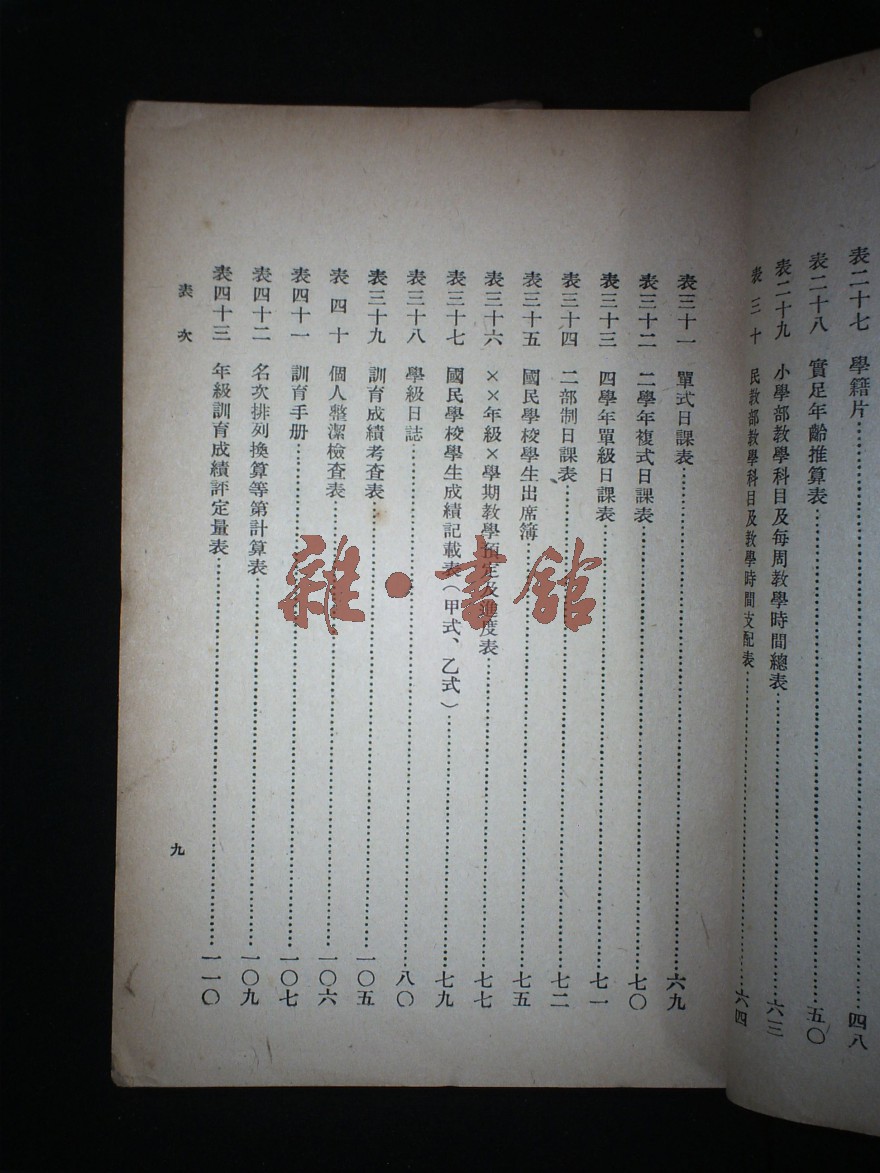 表二十七 學籍片⋯⋯四八
表二十八 實足年齡推算表⋯⋯五〇
表二十九 小學部教學科目及每周教學時間總表⋯⋯六三
表三十 民教部教學科目及教學時間支配表⋯⋯六四
表三十一 單式日課表⋯⋯六九
表三十二 二學年複式日課表⋯⋯七〇
表三十三 四學年單級日課表⋯⋯七一
表三十四 二部制日課表⋯⋯七二
表三十五 國民學校學生出席簿⋯⋯七五
表三十六 ××年級×學期教學預定及進度表⋯⋯七七
表三十七 國民學校學生成績記載表(甲式、乙式)⋯⋯七九
表三十八 學級日誌⋯⋯八〇
表三十九 訓育成績考查表⋯⋯一〇五
表四十 個人整潔檢查表⋯⋯一〇六
表四十一 訓育手册⋯⋯一〇七
表四十二 名次排列換算等第計算表⋯⋯一〇九
表四十三 年級訓育成績評定量表⋯⋯一一〇
表次
九
雜·書館